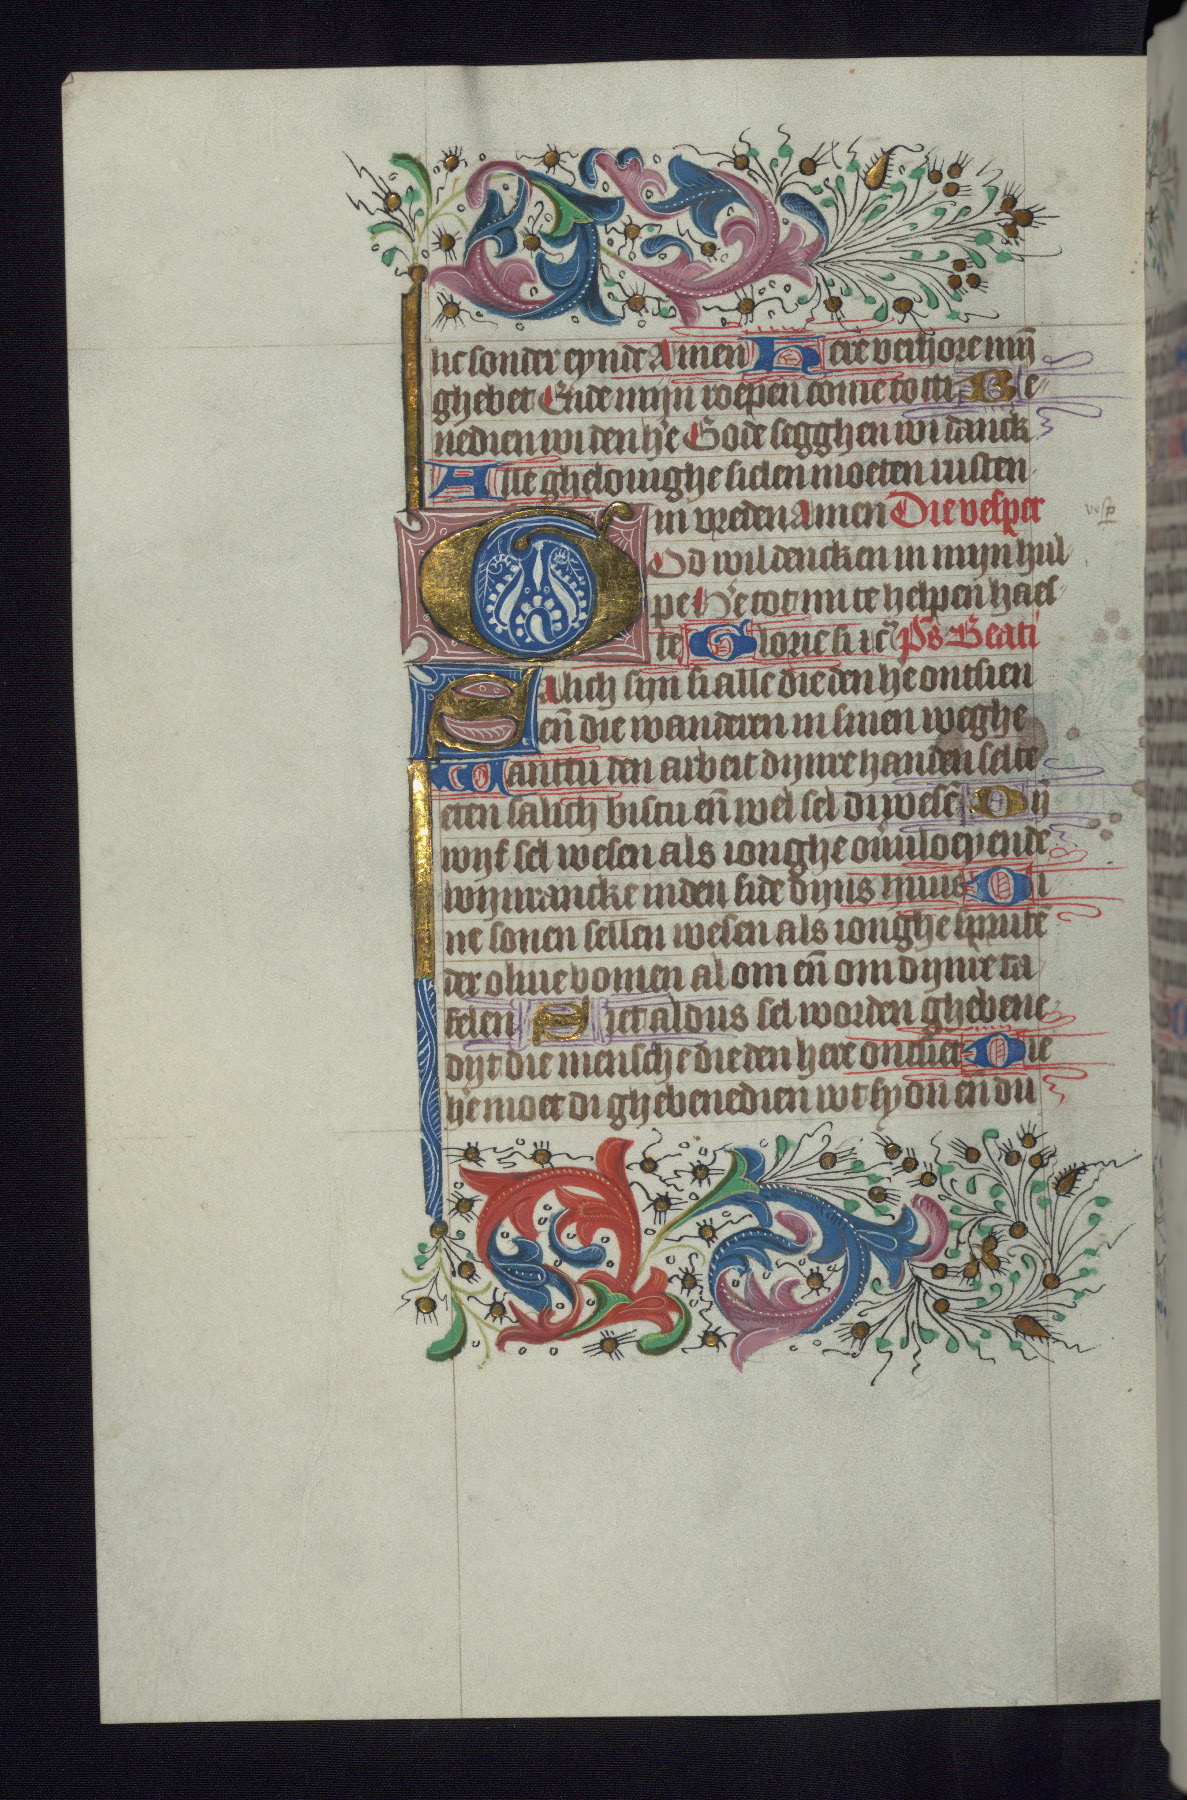 he sonder eynde Amen Here verhore mijn̄
ghebet Ende mijn roepen come to di Be-
nedien wi den he͛ Gode segghen wi danck
Alle ghelouighe sielen moeten rusten
in vreden Amen Die vesper
God wil dencken in mijn hul-
pe He͛ tot mi te helpen haes-
te Glorie si ⁊c̄ Ps̄ Beati
Salich sijn si alle die den he͛ ontsien
en̄ die wanderen in sinen weghe
Want tu den arbeit dijnre handen selte
eten salich bistu en̄ wel sel di wesē Dij̄
wijf sel wesen als ionghe ouuloeyende
wijnrancke in den side dijns huus Di
ne sonen sellen wesen als ionghe sprutē
der oliue bomen al om en̄ om dijnre ta
felen Siet aldus sel worden ghebene
dijt die mensche die den here ontsiet Die
he͛ moet di ghebenedien wt syon en du
vesp̄